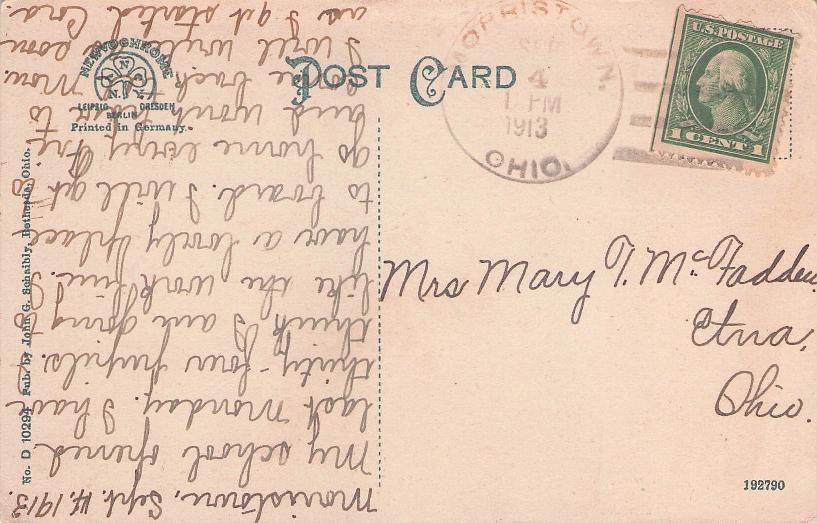 POST CARD
NEWVOCHROME
A N C
N.Y.
LEIPZIG DRESDEN
BERLIN
Printed in Germany.
MORRISTOWN,
SEP
4
1 PM
1913
OHIO.
U.S. POSTAGE
1 CENT 1
Mrs Mary T. McFadden
Etna,
Ohio.
192790
No. D 10294 Pub. by John G. Schaibly, Bethesda, Ohio.
Morristown, Sept. 4, 1913.
My school opened
last Monday. I have
thirty-four pupils.
think I am going to
like the work fine. I
have a lovely place
to board. I will get to
go home every Fri
and won't have to
come back till Mon.
I will write soon
as I get started Cora